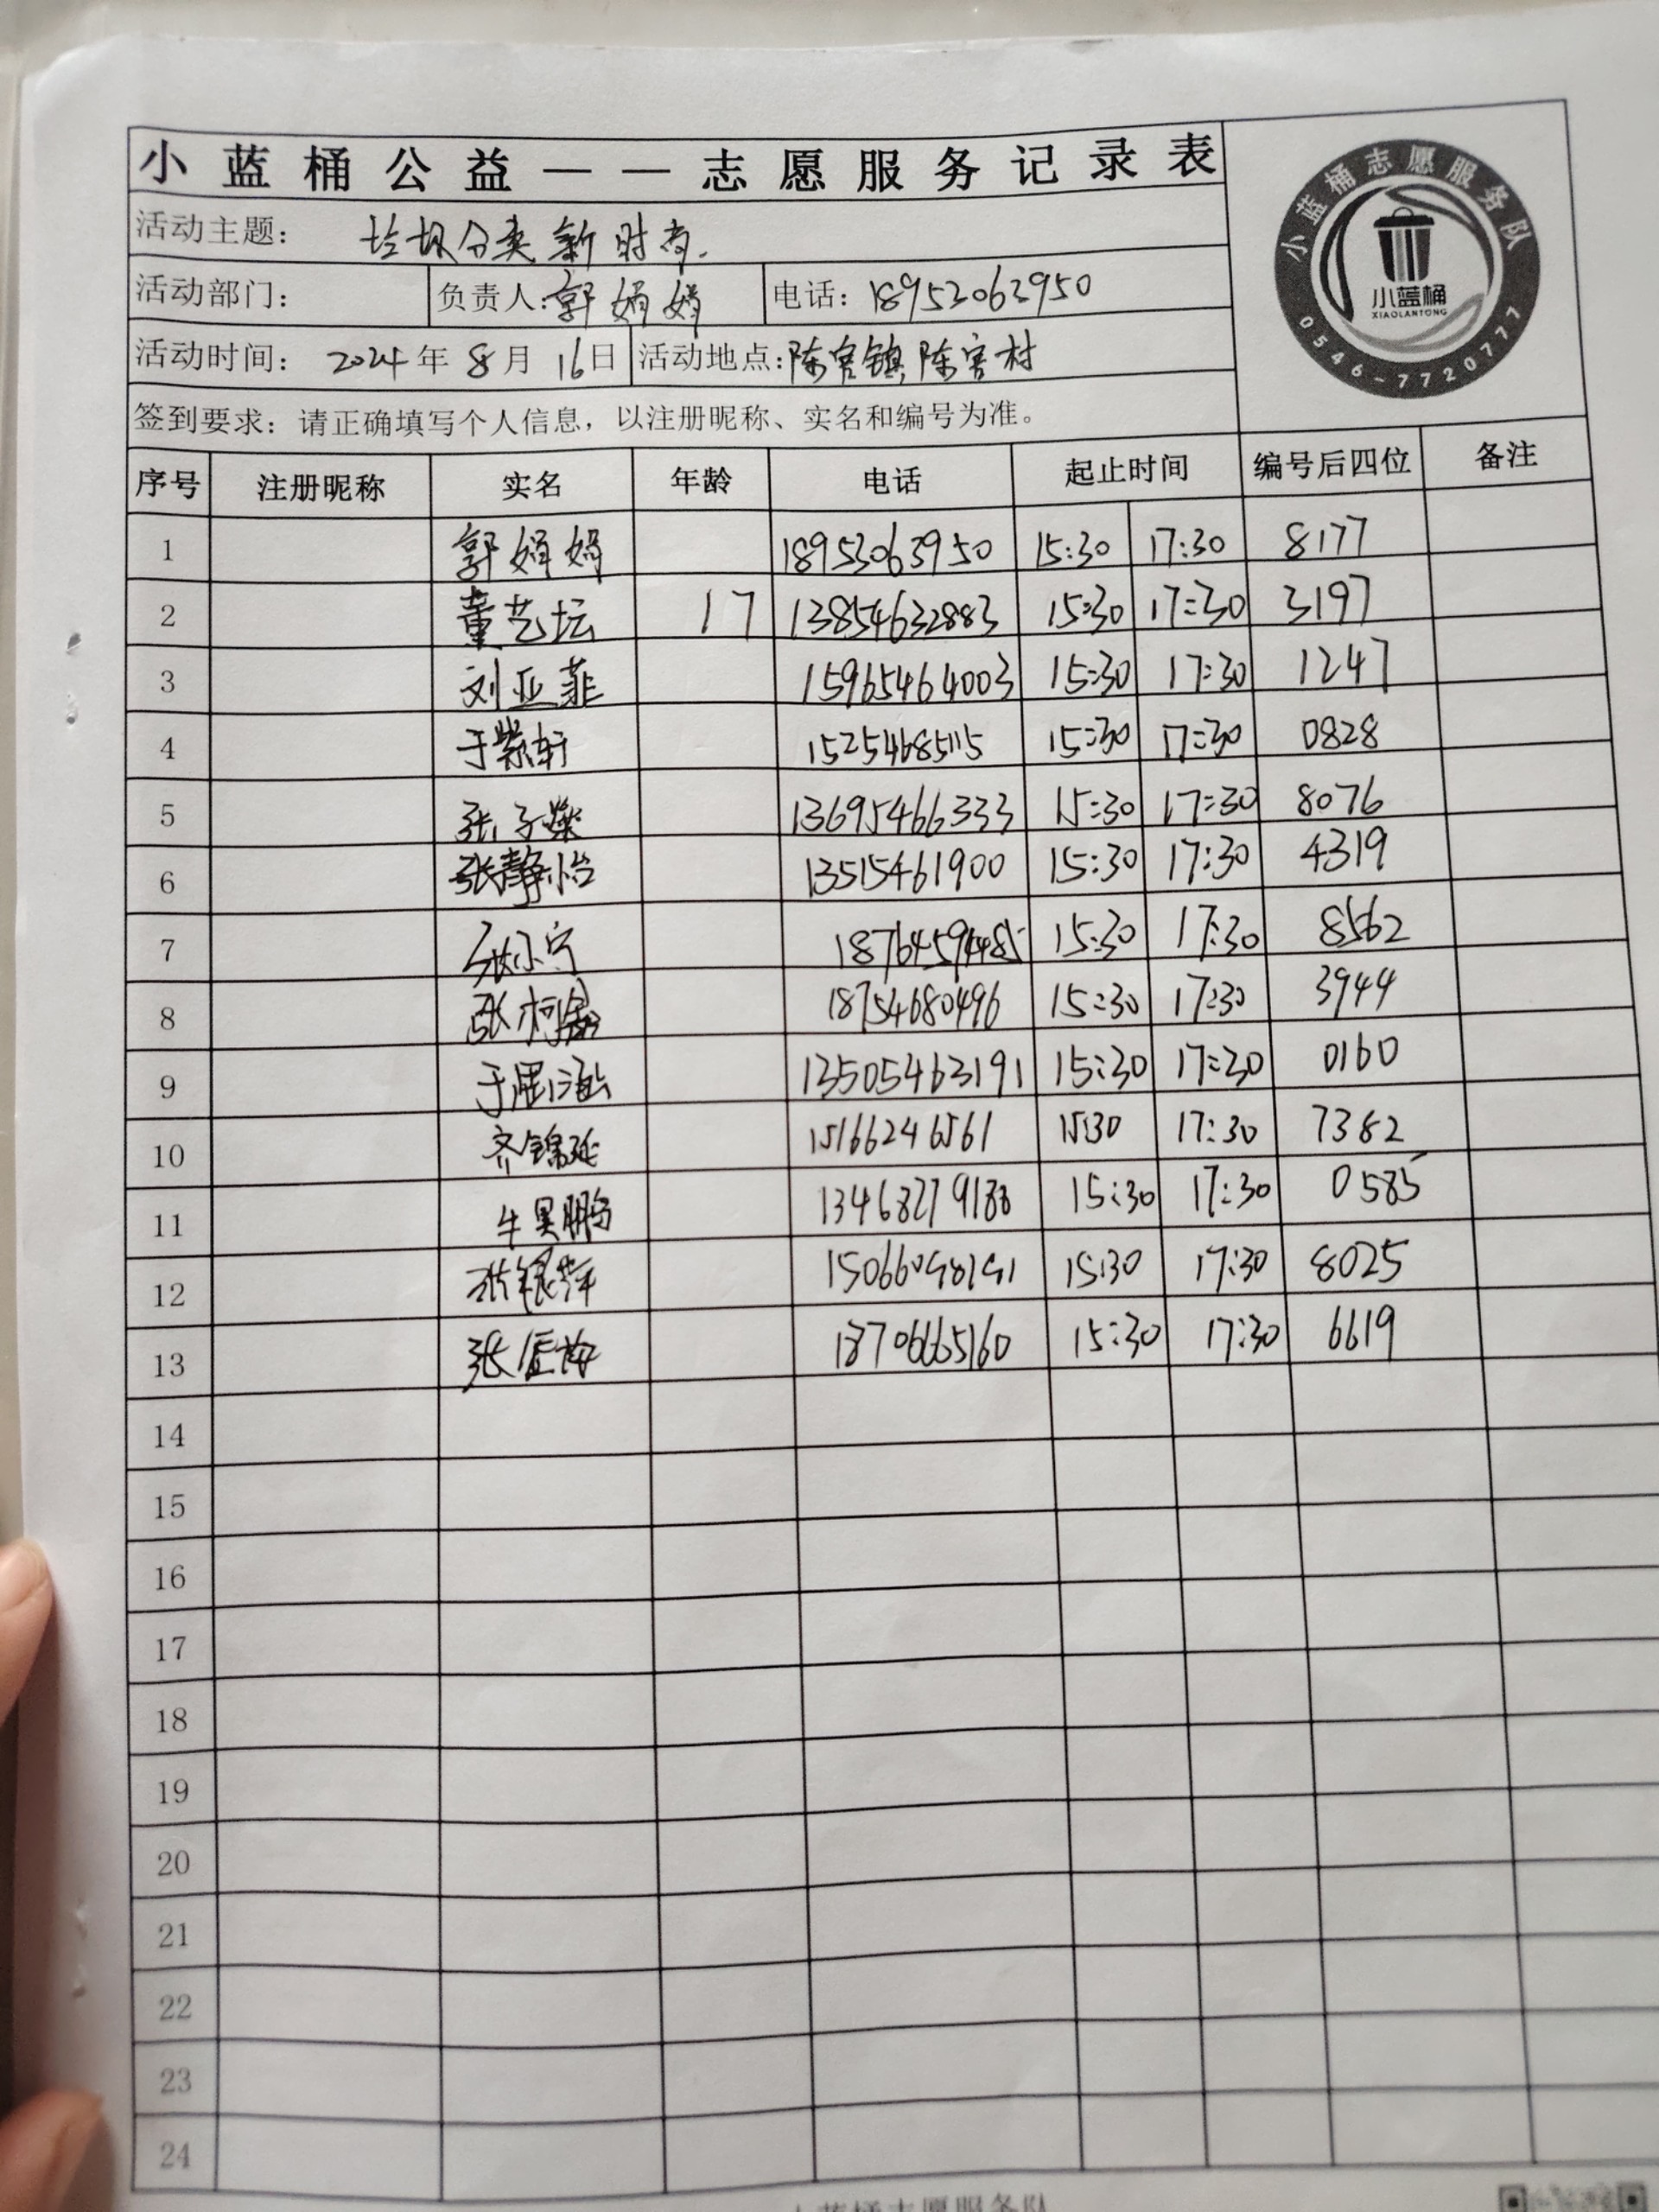 小蓝桶公益——志愿服务记录表
小蓝桶志愿服务队
小蓝桶
XIAOLANTONG
0546-7720777
活动主题: 垃圾分类新时尚.
活动部门: 负责人:郭娟娟 电话: 18953063950
活动时间: 2024年 8月 16日 活动地点:陈官镇陈官村
签到要求: 请正确填写个人信息, 以注册昵称、实名和编号为准。
序号 注册昵称 实名 年龄 电话 起止时间 编号后四位 备注
1 郭娟娟 18953063950 15:30 17:30 8177
2 董艺坛 17 13854632883 15:30 17:30 3197
3 刘亚菲 15965464003 15:30 17:30 1247
4 于紫轩 15254685115 15:30 17:30 0828
5 张子燊 13695466333 15:30 17:30 8076
6 张静怡 13515461900 15:30 17:30 4319
7 张小宁 18764594485 15:30 17:30 8562
8 18754680496 15:30 17:30 3944
9 13505463191 15:30 17:30 0160
10 齐锦延 15166246561 15:30 17:30 7382
11 牛昊鹏 13468279188 15:30 17:30 0585
12 张银萍 15066098191 15:30 17:30 8025
13 18706665160 15:30 17:30 6619
14
15
16
17
18
19
20
21
22
23
24
小蓝桶志愿服务队